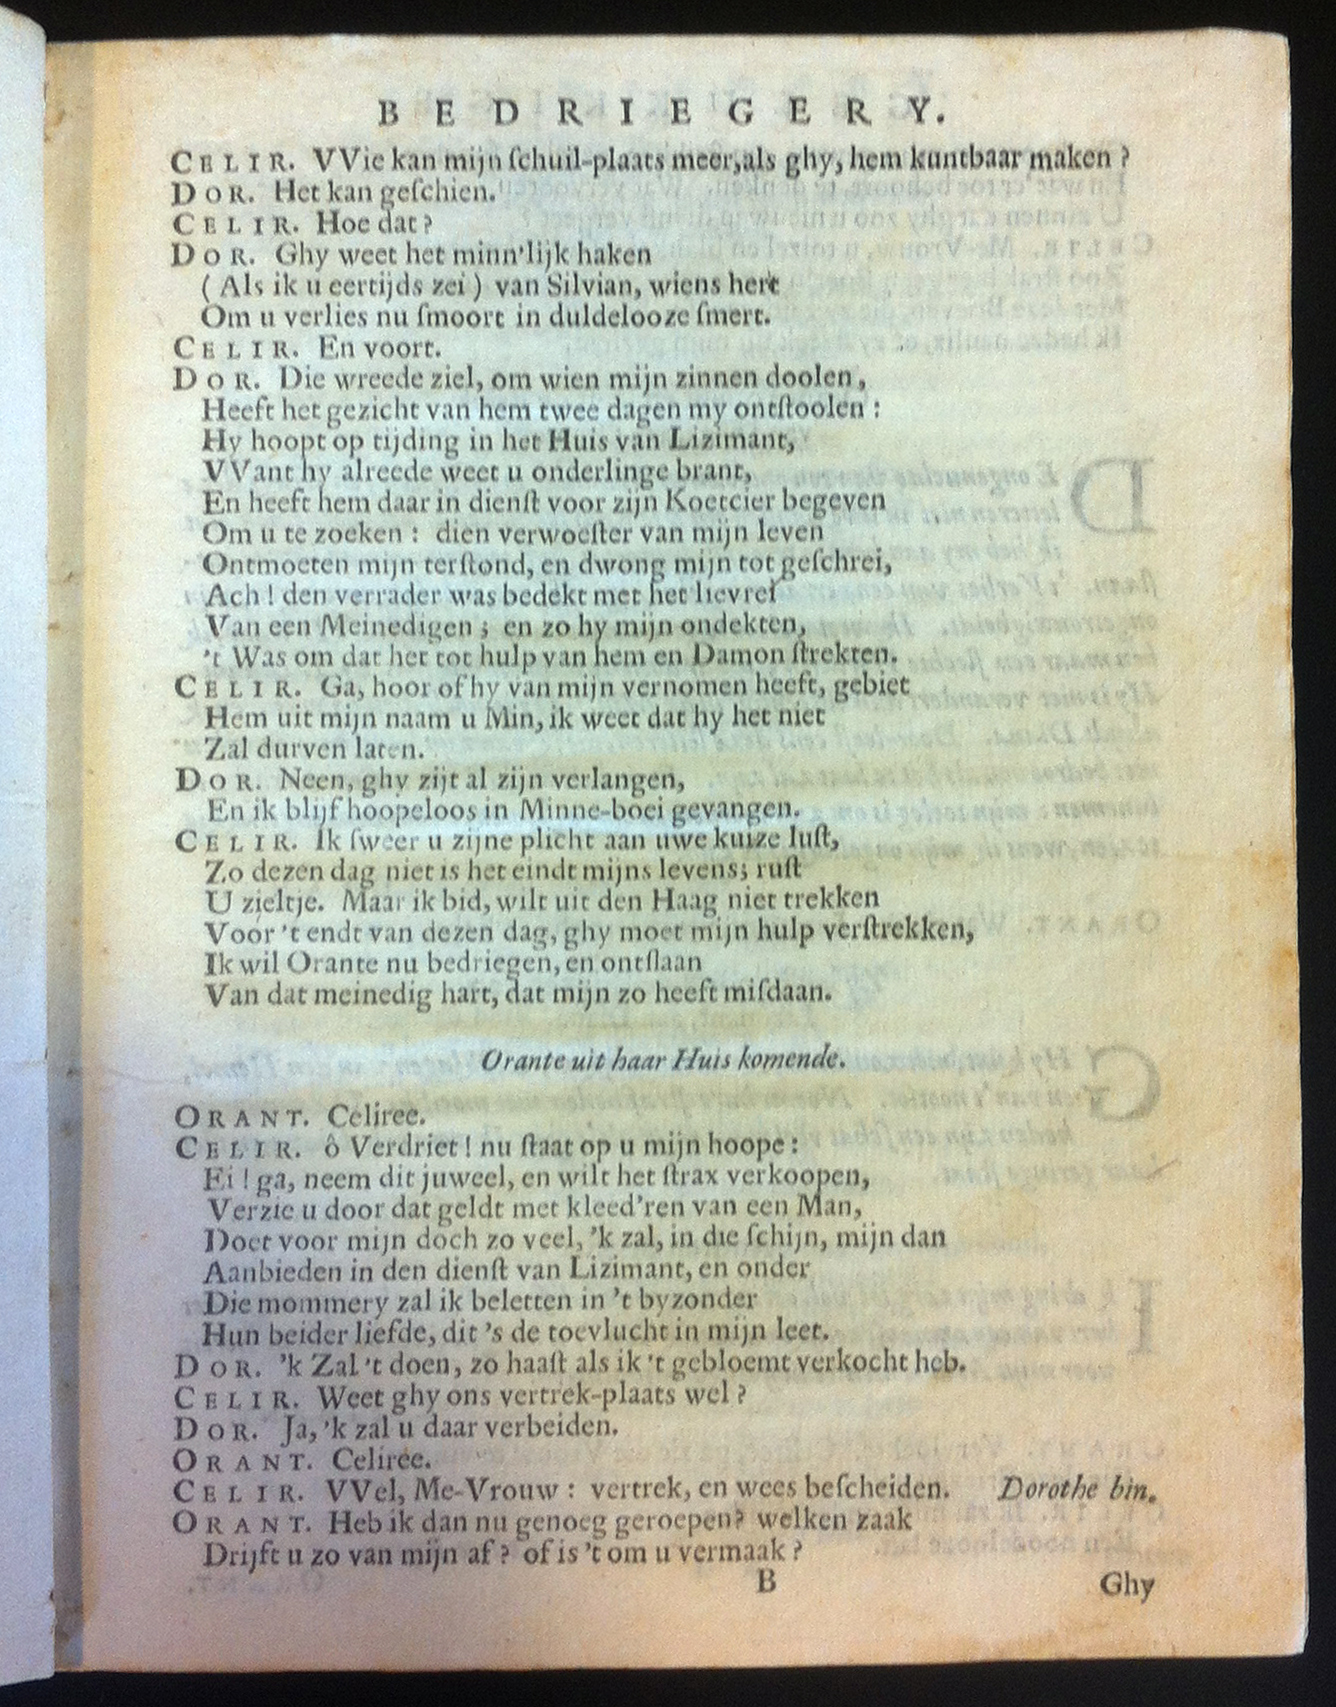 BEDRIEGERY.
CELIR. VVie kan mijn ſchuil-plaats meer,als ghy, hem kuntbaar maken?
DOR. Het kan geſchien.
CELIR. Hoe dat?
DOR. Ghy weet het minn'lijk haken
(Als ik u eertijds zei) van Silvian, wiens hert
Om u verlies nu ſmoort in duldelooze ſmert.
CELIR. En voort.
DOR. Die wreede ziel, om wien mijn zinnen doolen,
Heeft het gezicht van hem twee dagen my ontſtoolen:
Hy hoopt op tijding in het Huis van Lizimant,
VVant hy alreede weet u onderlinge brant,
En heeft hem daar in dienſt voor zijn Koetcier begeven
Om u te zoeken: dien verwoeſter van mijn leven
Ontmoeten mijn terſtond, en dwong mijn tot geſchrei,
Ach! den verrader was bedekt met het lievrei
Van een Meinedigen; en zo hy mijn ondekten,
't Was om dat het tot hulp van hem en Damon ſtrekten.
CELIR. Ga, hoor of hy van mijn vernomen heeft, gebiet
Hem uit mijn naam u Min, ik weet dat hy het niet
Zal durven laten.
DOR. Neen, ghy zijt al zijn verlangen,
En ik blijf hoopeloos in Minne-boei gevangen.
CELIR. Ik ſweer u zijne plicht aan uwe kuize luſt,
Zo dezen dag niet is het eindt mijns levens; ruſt
U zieltje. Maar ik bid, wilt uit den Haag niet trekken
Voor 't endt van dezen dag, ghy moet mijn hulp verſtrekken,
Ik wil Orante nu bedriegen, en ontſlaan
Van dat meinedig hart, dat mijn zo heeft miſdaan.
Orante uit haar Huis komende.
ORANT. Celiree.
CELIR. ô Verdriet! nu ſtaat op u mijn hoope:
Ei! ga, neem dit juweel, en wilt het ſtrax verkoopen,
Verzie u door dat geldt met kleed'ren van een Man,
Doet voor mijn doch zo veel, 'k zal, in die ſchijn, mijn dan
Aanbieden in den dienſt van Lizimant, en onder
Die mommery zal ik beletten in 't byzonder
Hun beider liefde, dit 's de toevlucht in mijn leet.
DOR. 'k Zal 't doen, zo haaſt als ik 't gebloemt verkocht heb.
CELIR. Weet ghy ons vertrek-plaats wel?
DOR. Ja, 'k zal u daar verbeiden.
ORANT. Celiree.
CELIR. VVel, Me-Vrouw: vertrek, en wees beſcheiden. Dorothe bin.
ORANT. Heb ik dan nu genoeg geroepen? welken zaak
Drijft u zo van mijn af? of is 't om u vermaak?
B Ghy